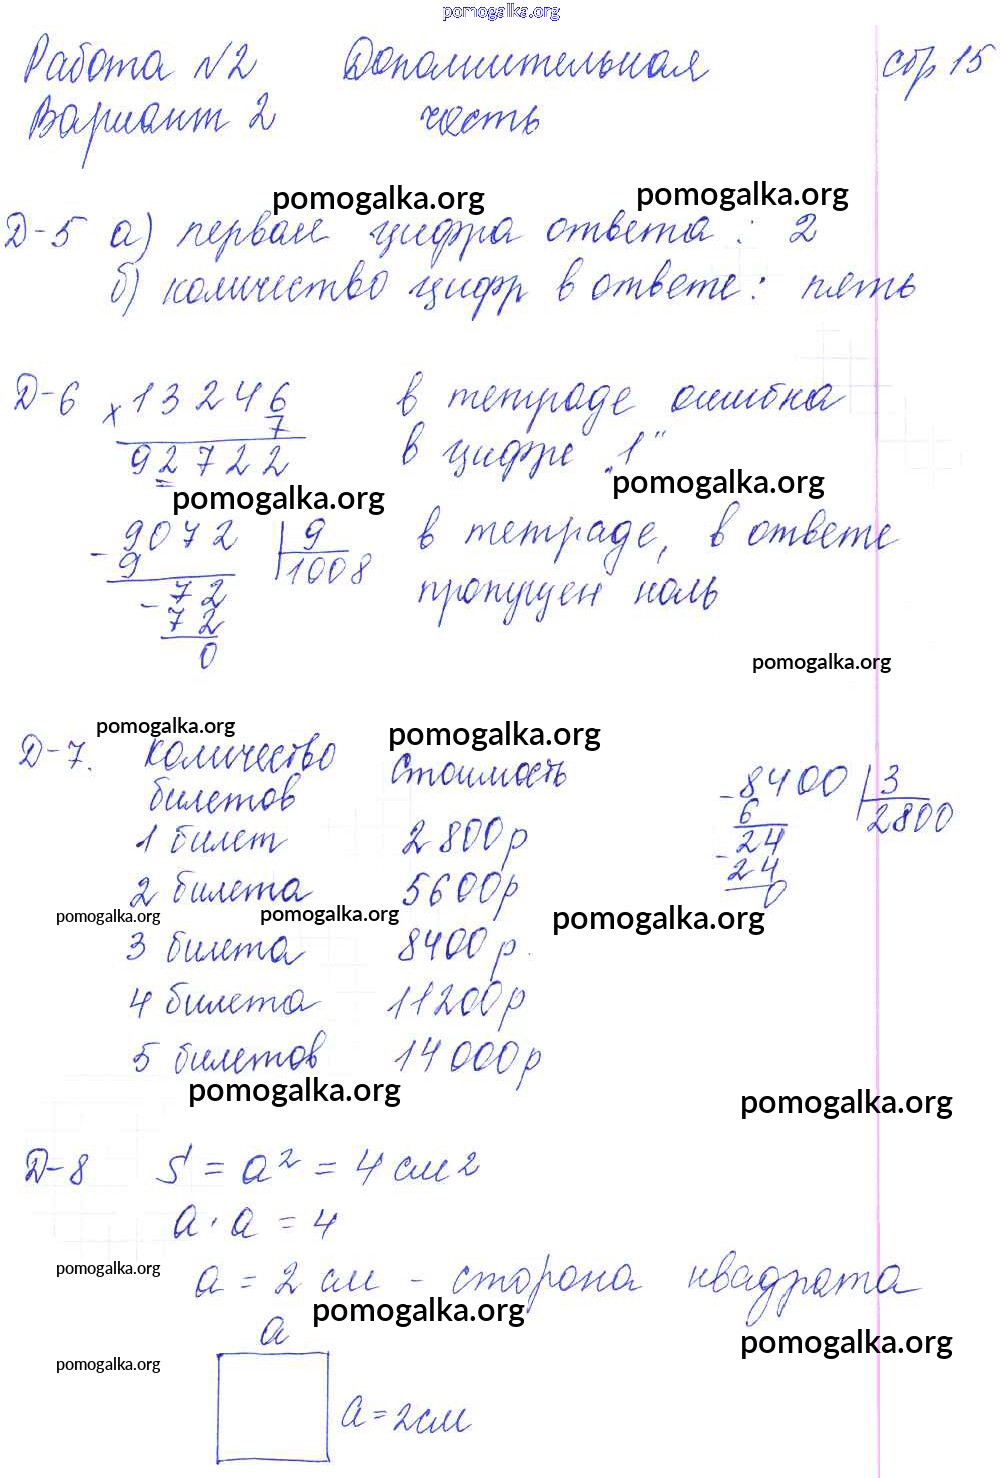 pomogalka.org
Работа №2 Дополнительная стр 15
Вариант 2 часть
pomogalka.org pomogalka.org
Д-5 а) первая цифра ответа: 2
б) количество цифр в ответе: пять
Д-6 × 13246 в тетраде ошибка
7 в цифре „1"
92722
pomogalka.org pomogalka.org
- 9072 | 9 в тетраде, в ответе
9 1008 пропущен ноль
- 72
72
0
pomogalka.org
pomogalka.org pomogalka.org
Д-7. количество стоимость - 8400 | 3
билетов 6 2800
1 билет 2800р - 24
2 билета 5600р 24
0
pomogalka.org pomogalka.org pomogalka.org
3 билета 8400р.
4 билета 11200р
5 билетов 14000р
pomogalka.org pomogalka.org
Д-8 S = a² = 4 см2
a · a = 4
pomogalka.org
a = 2 см - сторона квадрата
pomogalka.org
a
pomogalka.org
pomogalka.org
a = 2см